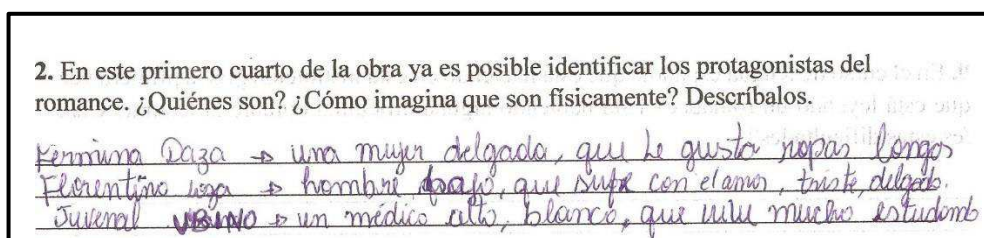 2. En este primero cuarto de la obra ya es posible identificar los protagonistas del
romance. ¿Quiénes son? ¿Cómo imagina que son físicamente? Descríbalos.
Fermina Daza → una mujer delgada, que le gusta ropas longas
Florentino → hombre bajo, que sufre con el amor, triste, delgado.
Juvenal URBINO → un médico alto, blanco, que mucho estudando